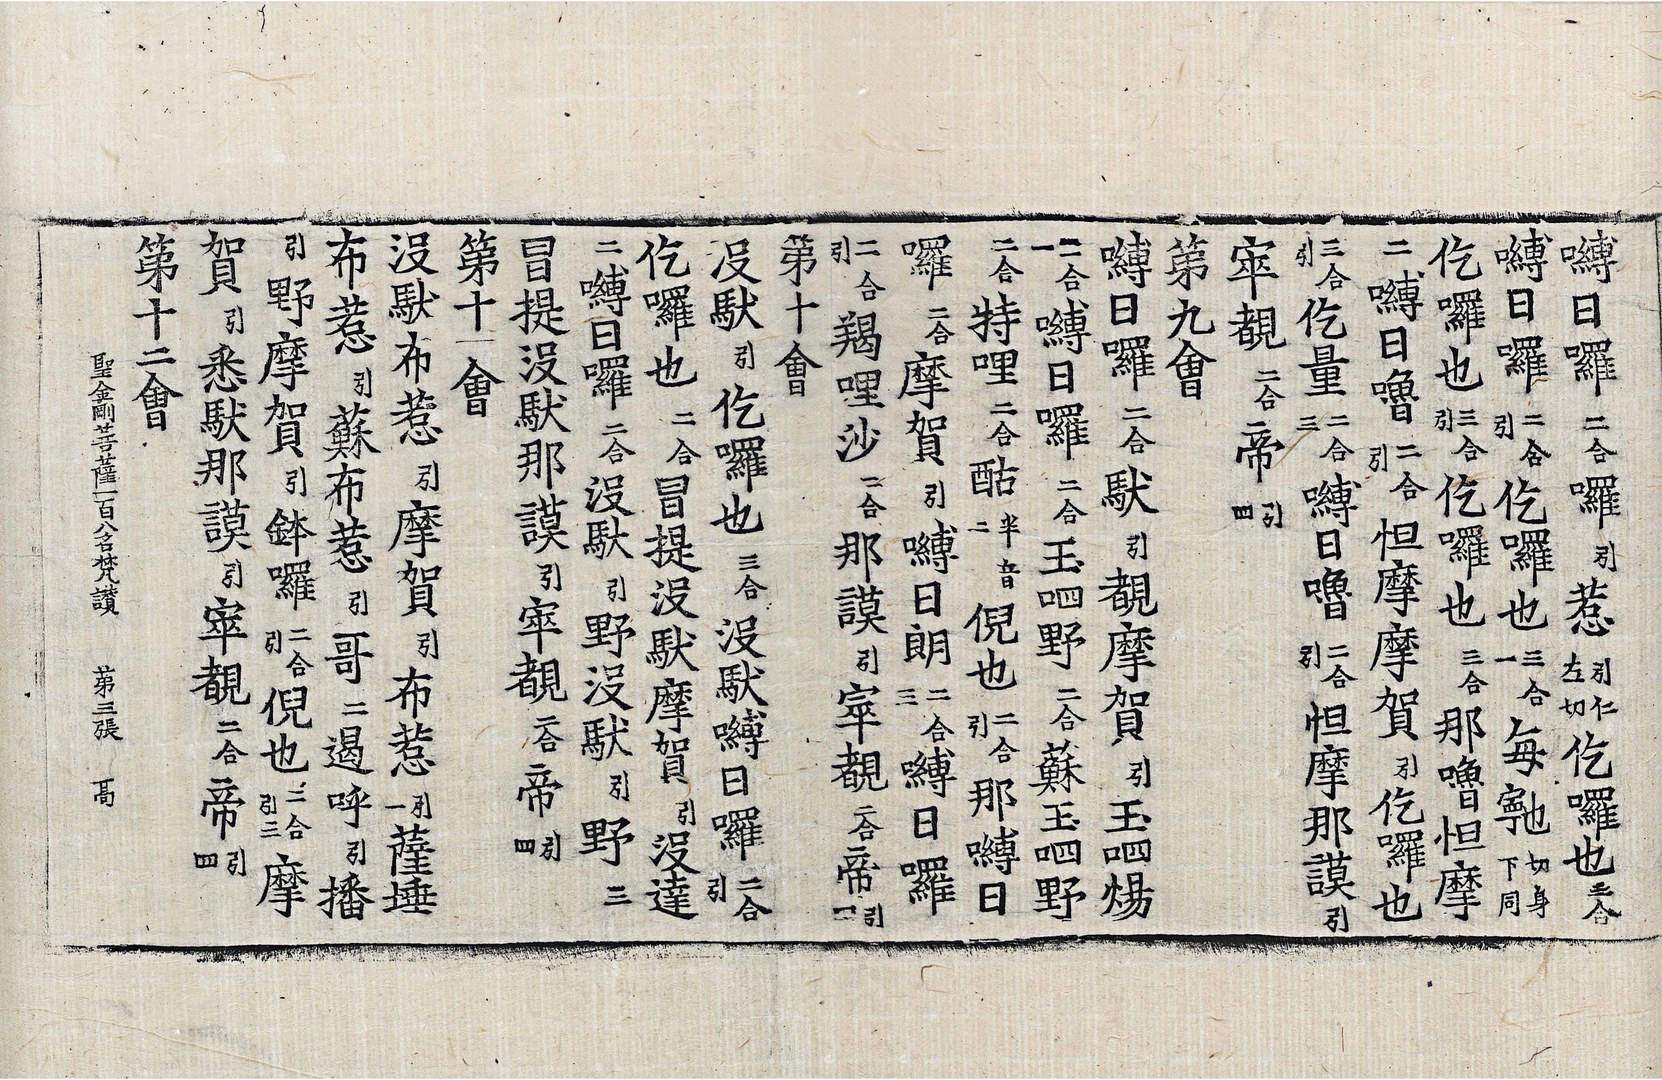 嚩日囉二合囉引惹引仁左切仡囉也三合
嚩日囉二合引仡囉也三合一每寧也切身下同
仡囉也三合引仡囉也三合那嚕怛摩
二嚩日嚕二合引怛摩摩賀引仡囉也
三合引仡量二合三嚩日嚕二合引怛摩那謨引
宰覩二合帝引四
第九會
嚩日囉二合馱引覩摩賀引玉呬煬
二合一嚩日囉二合玉呬野二合蘇玉呬野
二合特哩二合酤半音二倪也二合引那嚩日
囉二合摩賀引嚩日朗二合三嚩日囉
二合引羯哩沙二合那謨引宰覩二合帝引四
第十會
没馱引仡囉也三合没馱嚩日囉二合引
仡囉也二合冒提没馱摩賀引没達
二嚩日囉二合没馱引野没馱引野三
冒提没馱那謨引宰覩二合帝引四
第十一會
没馱布惹引摩賀引布惹引一薩埵
布惹引蘇布惹引哥二遏呼引播
引野摩賀引鉢囉二合引倪也二合引三摩
賀引悉馱那謨引宰覩二合帝引四
第十二會
聖金剛菩薩一百八名梵讚 第三張 髙